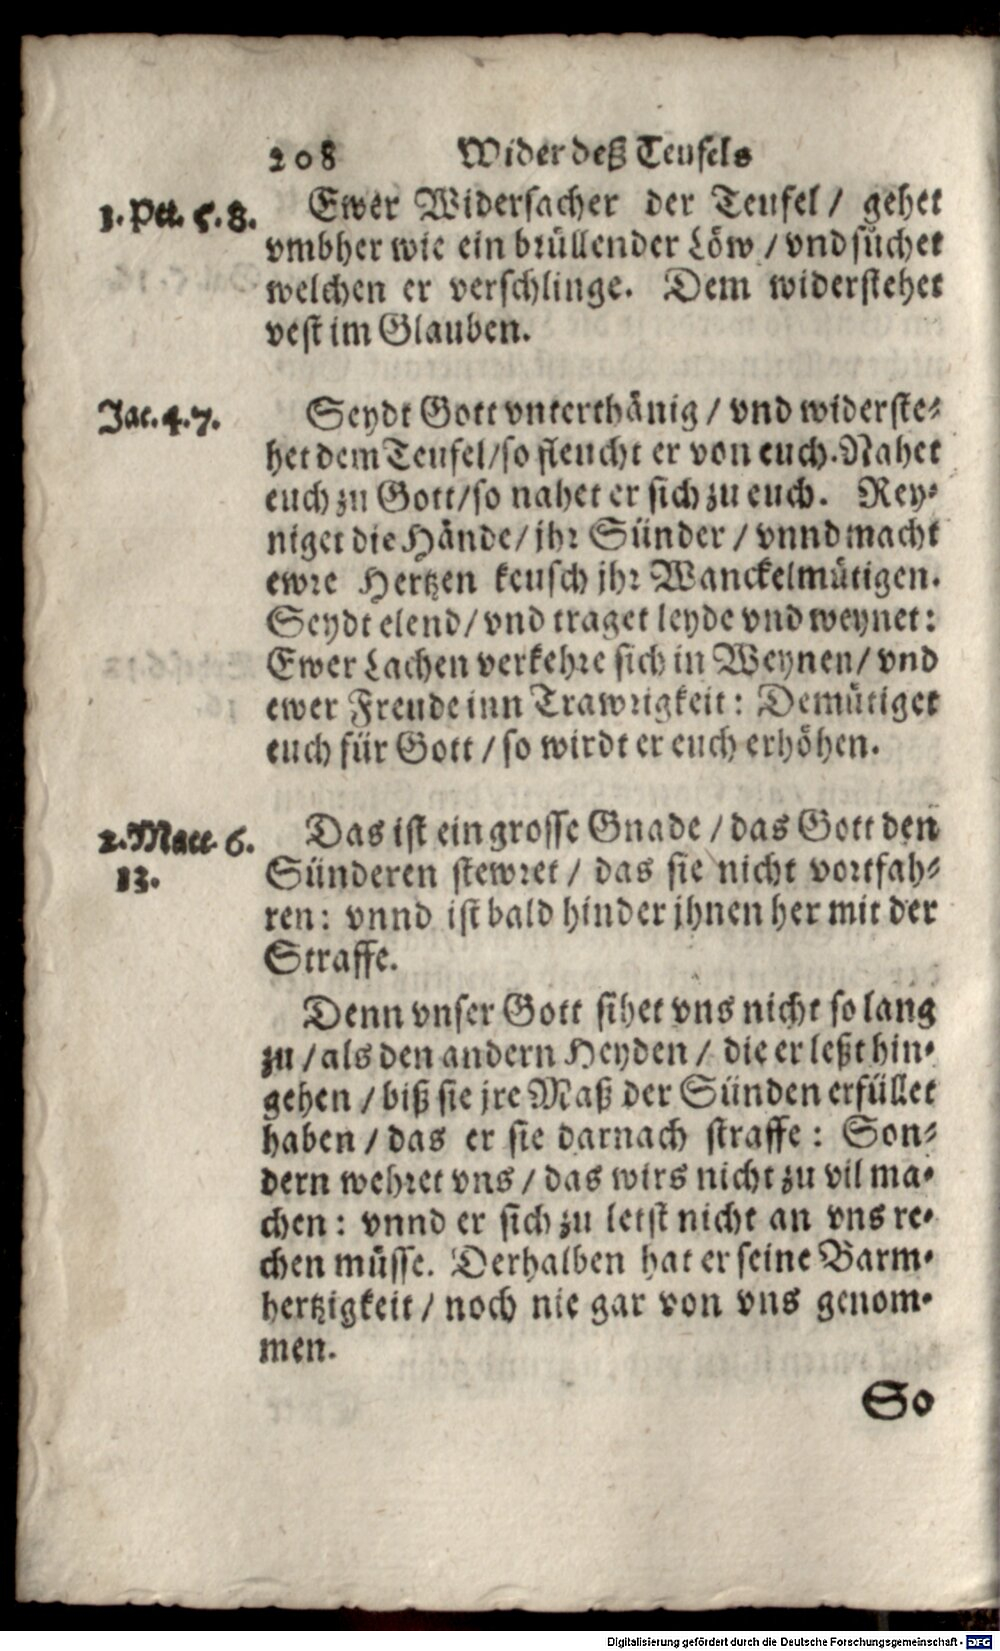 208 Wider deß Teufels
1. Pet. 5. 8.
Ewer Widersacher der Teufel / gehet
vmbher wie ein brüllender Löw / vnd suchet
welchen er verschlinge. Dem widerstehet
vest im Glauben.
Jac. 4. 7.
Seydt Gott vnterthänig / vnd widerste-
het dem Teufel / so fleucht er von euch. Nahet
euch zu Gott / so nahet er sich zu euch. Rey-
niget die Hände / jhr Sünder / vnnd macht
ewre Hertzen keusch jhr Wanckelmütigen.
Seydt elend / vnd traget leyde vnd weynet:
Ewer Lachen verkehre sich in Weynen / vnd
ewer Freude inn Trawrigkeit: Demütiget
euch für Gott / so wirdt er euch erhöhen.
2. Macc. 6.
13.
Das ist ein grosse Gnade / das Gott den
Sünderen stewret / das sie nicht vortfah-
ren: vnnd ist bald hinder jhnen her mit der
Straffe.
Denn vnser Gott sihet vns nicht so lang
zu / als den andern Heyden / die er leßt hin-
gehen / biß sie jre Maß der Sünden erfüllet
haben / das er sie darnach straffe: Son-
dern wehret vns / das wirs nicht zu vil ma-
chen: vnnd er sich zu letst nicht an vns re-
chen müsse. Derhalben hat er seine Barm-
hertzigkeit / noch nie gar von vns genom-
men.
So
Digitalisierung gefördert durch die Deutsche Forschungsgemeinschaft - DFG